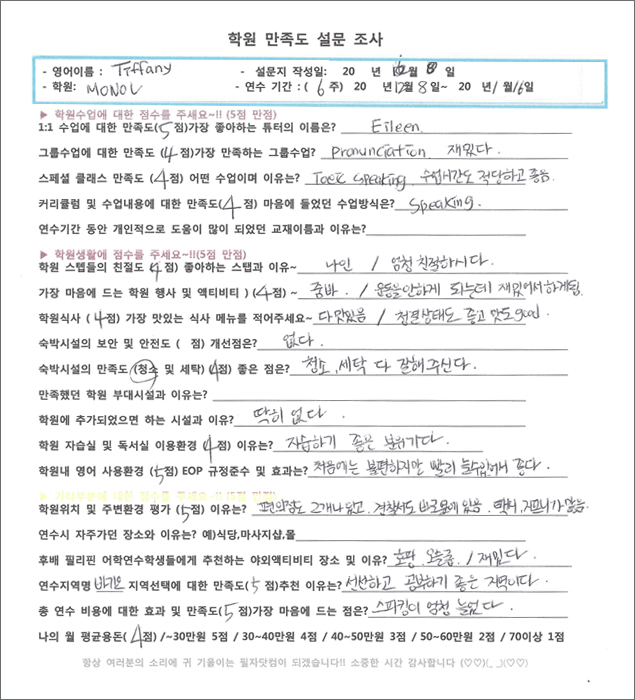 학원 만족도 설문 조사
- 영어이름 : Tiffany - 설문지 작성일: 20 년 12월 8 일
- 학원: MONOL - 연수 기간 : ( 6 주) 20 년12월8일~ 20 년/월16일
▶ 학원수업에 대한 점수를 주세요~!! (5점 만점)
1:1 수업에 대한 만족도(5점)가장 좋아하는 튜터의 이름은? Eileen.
그룹수업에 대한 만족도 (4점)가장 만족하는 그룹수업? Pronunciation 재밌다.
스페셜 클래스 만족도 (4점) 어떤 수업이며 이유는? Toeic Speaking. 수업시간도 적당하고 좋음.
커리큘럼 및 수업내용에 대한 만족도(4점) 마음에 들었던 수업방식은? Speaking.
연수기간 동안 개인적으로 도움이 많이 되었던 교재이름과 이유는?
▶ 학원생활에 점수를 주세요~!!(5점 만점)
학원 스텝들의 친절도 (4점) 좋아하는 스탭과 이유~ 나인 / 엄청 친절하시다.
가장 마음에 드는 학원 행사 및 액티비티 ) (4점) ~ 줌바. / 운동을 안하게 되는데 재밌어서 하게됨.
학원식사 ( 4점) 가장 맛있는 식사 메뉴를 적어주세요~ 다 맛있음 / 청결상태도 좋고 맛도 good.
숙박시설의 보안 및 안전도 ( 점) 개선점은? 없다.
숙박시설의 만족도 (청소 및 세탁) (4점) 좋은 점은? 청소, 세탁 다 잘해주신다.
만족했던 학원 부대시설과 이유는?
학원에 추가되었으면 하는 시설과 이유? 딱히 없다.
학원 자습실 및 독서실 이용환경 (4점) 이유는? 자습하기 좋은 분위기다.
학원내 영어 사용환경 (5점) EOP 규정준수 및 효과는? 처음에는 불편하지만 빨리 늘수있어서 좋다.
▶ 기타부분에 대한 점수를 주세요~!! (5점 만점)
학원위치 및 주변환경 평가 (5점) 이유는? 편의점도 그거나 있고, 경찰서도 바로옆에 있음. 택시, 지프니가 많음.
연수시 자주가던 장소와 이유는? 예)식당,마사지샵,몰
후배 필리핀 어학연수학생들에게 추천하는 야외액티비티 장소 및 이유? 호핑, 오슬롭. / 재밌다.
연수지역명 바기오 지역선택에 대한 만족도( 5점)추천 이유는? 선선하고 공부하기 좋은 지역이다.
총 연수 비용에 대한 효과 및 만족도(5점)가장 마음에 드는 점은? 스피킹이 엄청 늘었다.
나의 월 평균용돈(4점) /~30만원 5점 / 30~40만원 4점 / 40~50만원 3점 / 50~60만원 2점 / 70이상 1점
항상 여러분의 소리에 귀 기울이는 필자닷컴이 되겠습니다!! 소중한 시간 감사합니다 (♡♡)(_ _)(♡♡)